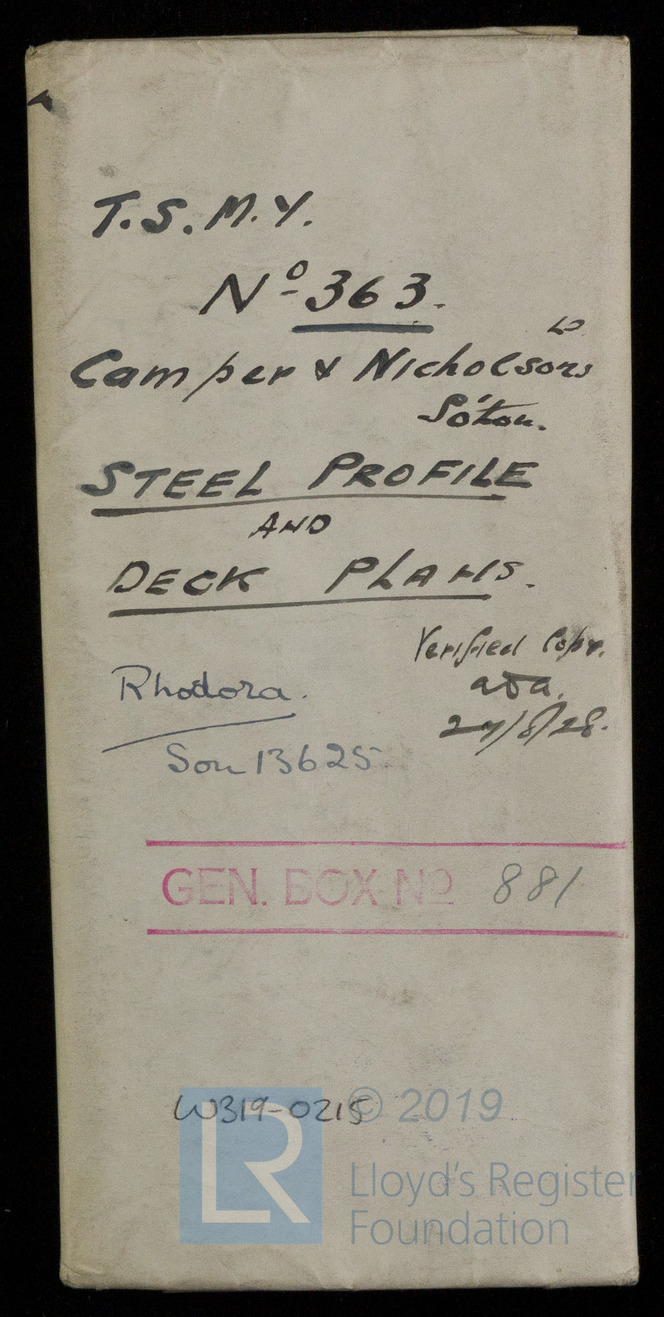 T.S.M.Y.
Nº 363.
Camper & Nicholsons Lᴰ
So'ton.
STEEL PROFILE
AND
DECK PLANS.
Verified Copy.
Rhodora.
27/8/28.
Son 13625
GEN. BOX Nº 881
W319-0215
© 2019
LR
Lloyd's Register
Foundation